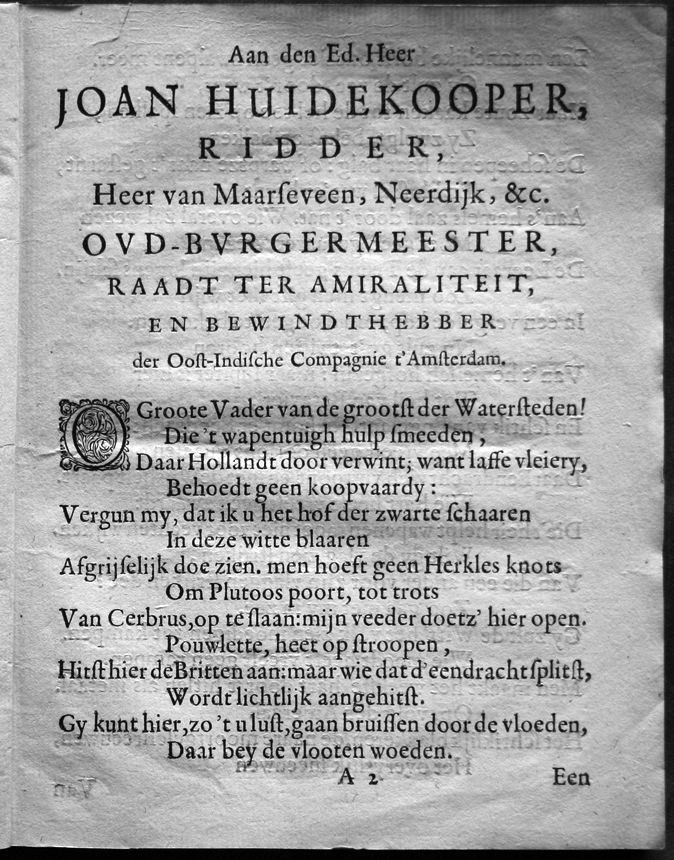 Aan den Ed. Heer
JOAN HUIDEKOOPER,
RIDDER,
Heer van Maarſeveen, Neerdijk, &c.
OVD-BVRGERMEESTER,
RAADT TER AMIRALITEIT,
EN BEWINDTHEBBER
der Ooſt-Indiſche Compagnie t'Amſterdam.
O Groote Vader van de grootſt der Waterſteden!
Die 't wapentuigh hulp ſmeeden,
Daar Hollandt door verwint; want laffe vleiery,
Behoedt geen koopvaardy:
Vergun my, dat ik u het hof der zwarte ſchaaren
In deze witte blaaren
Afgrijſelijk doe zien. men hoeft geen Herkles knots
Om Plutoos poort, tot trots
Van Cerbrus, op te ſlaan: mijn veeder doetz' hier open.
Pouwlette, heet op ſtroopen,
Hitſt hier de Britten aan: maar wie dat d'eendracht ſplitſt,
Wordt lichtlijk aangehitſt.
Gy kunt hier, zo 't u luſt, gaan bruiſſen door de vloeden,
Daar bey de vlooten woeden.
A 2 Een